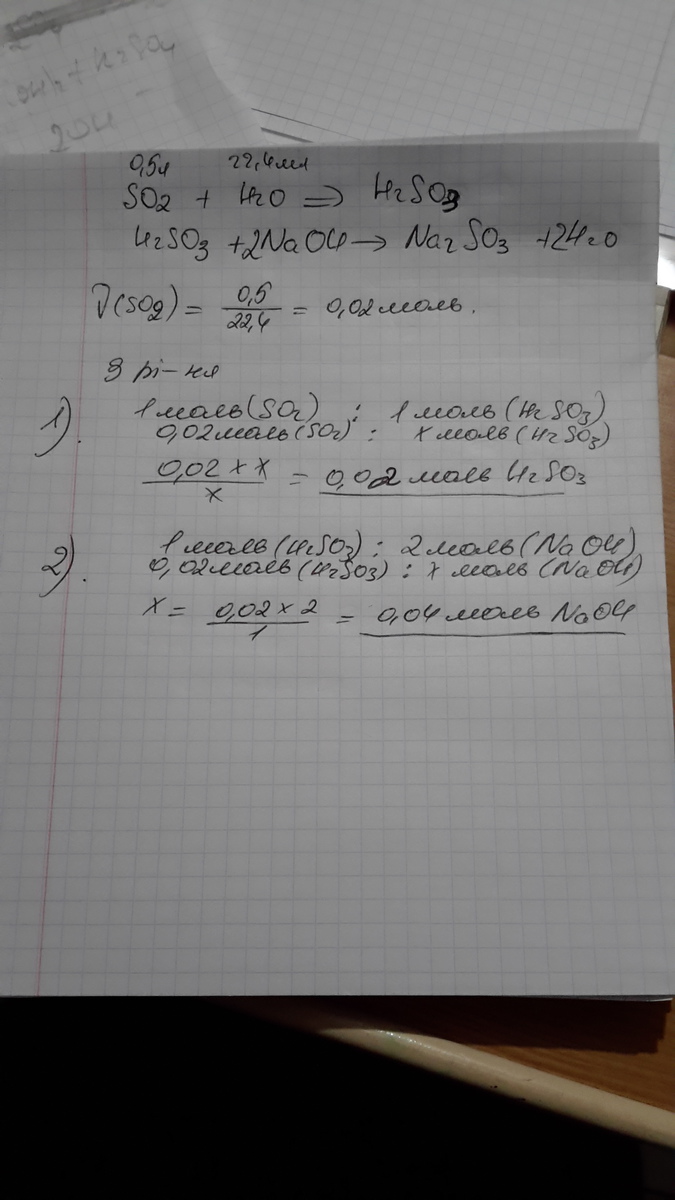 0,5л 22,4мл
SO2 + H2O ⇒ H2SO3
H2SO3 + 2NaOH → Na2SO3 + 2H2O
ν(SO2) = 0,5 / 22,4 = 0,02 моль.
З рі-ня
1). 1 моль (SO2) : 1 моль (H2SO3)
0,02 моль (SO2) : x моль (H2SO3)
0,02 × x / x = 0,02 моль H2SO3
2). 1 моль (H2SO3) : 2 моль (NaOH)
0,02 моль (H2SO3) : x моль (NaOH)
x = 0,02 × 2 / 1 = 0,04 моль NaOH